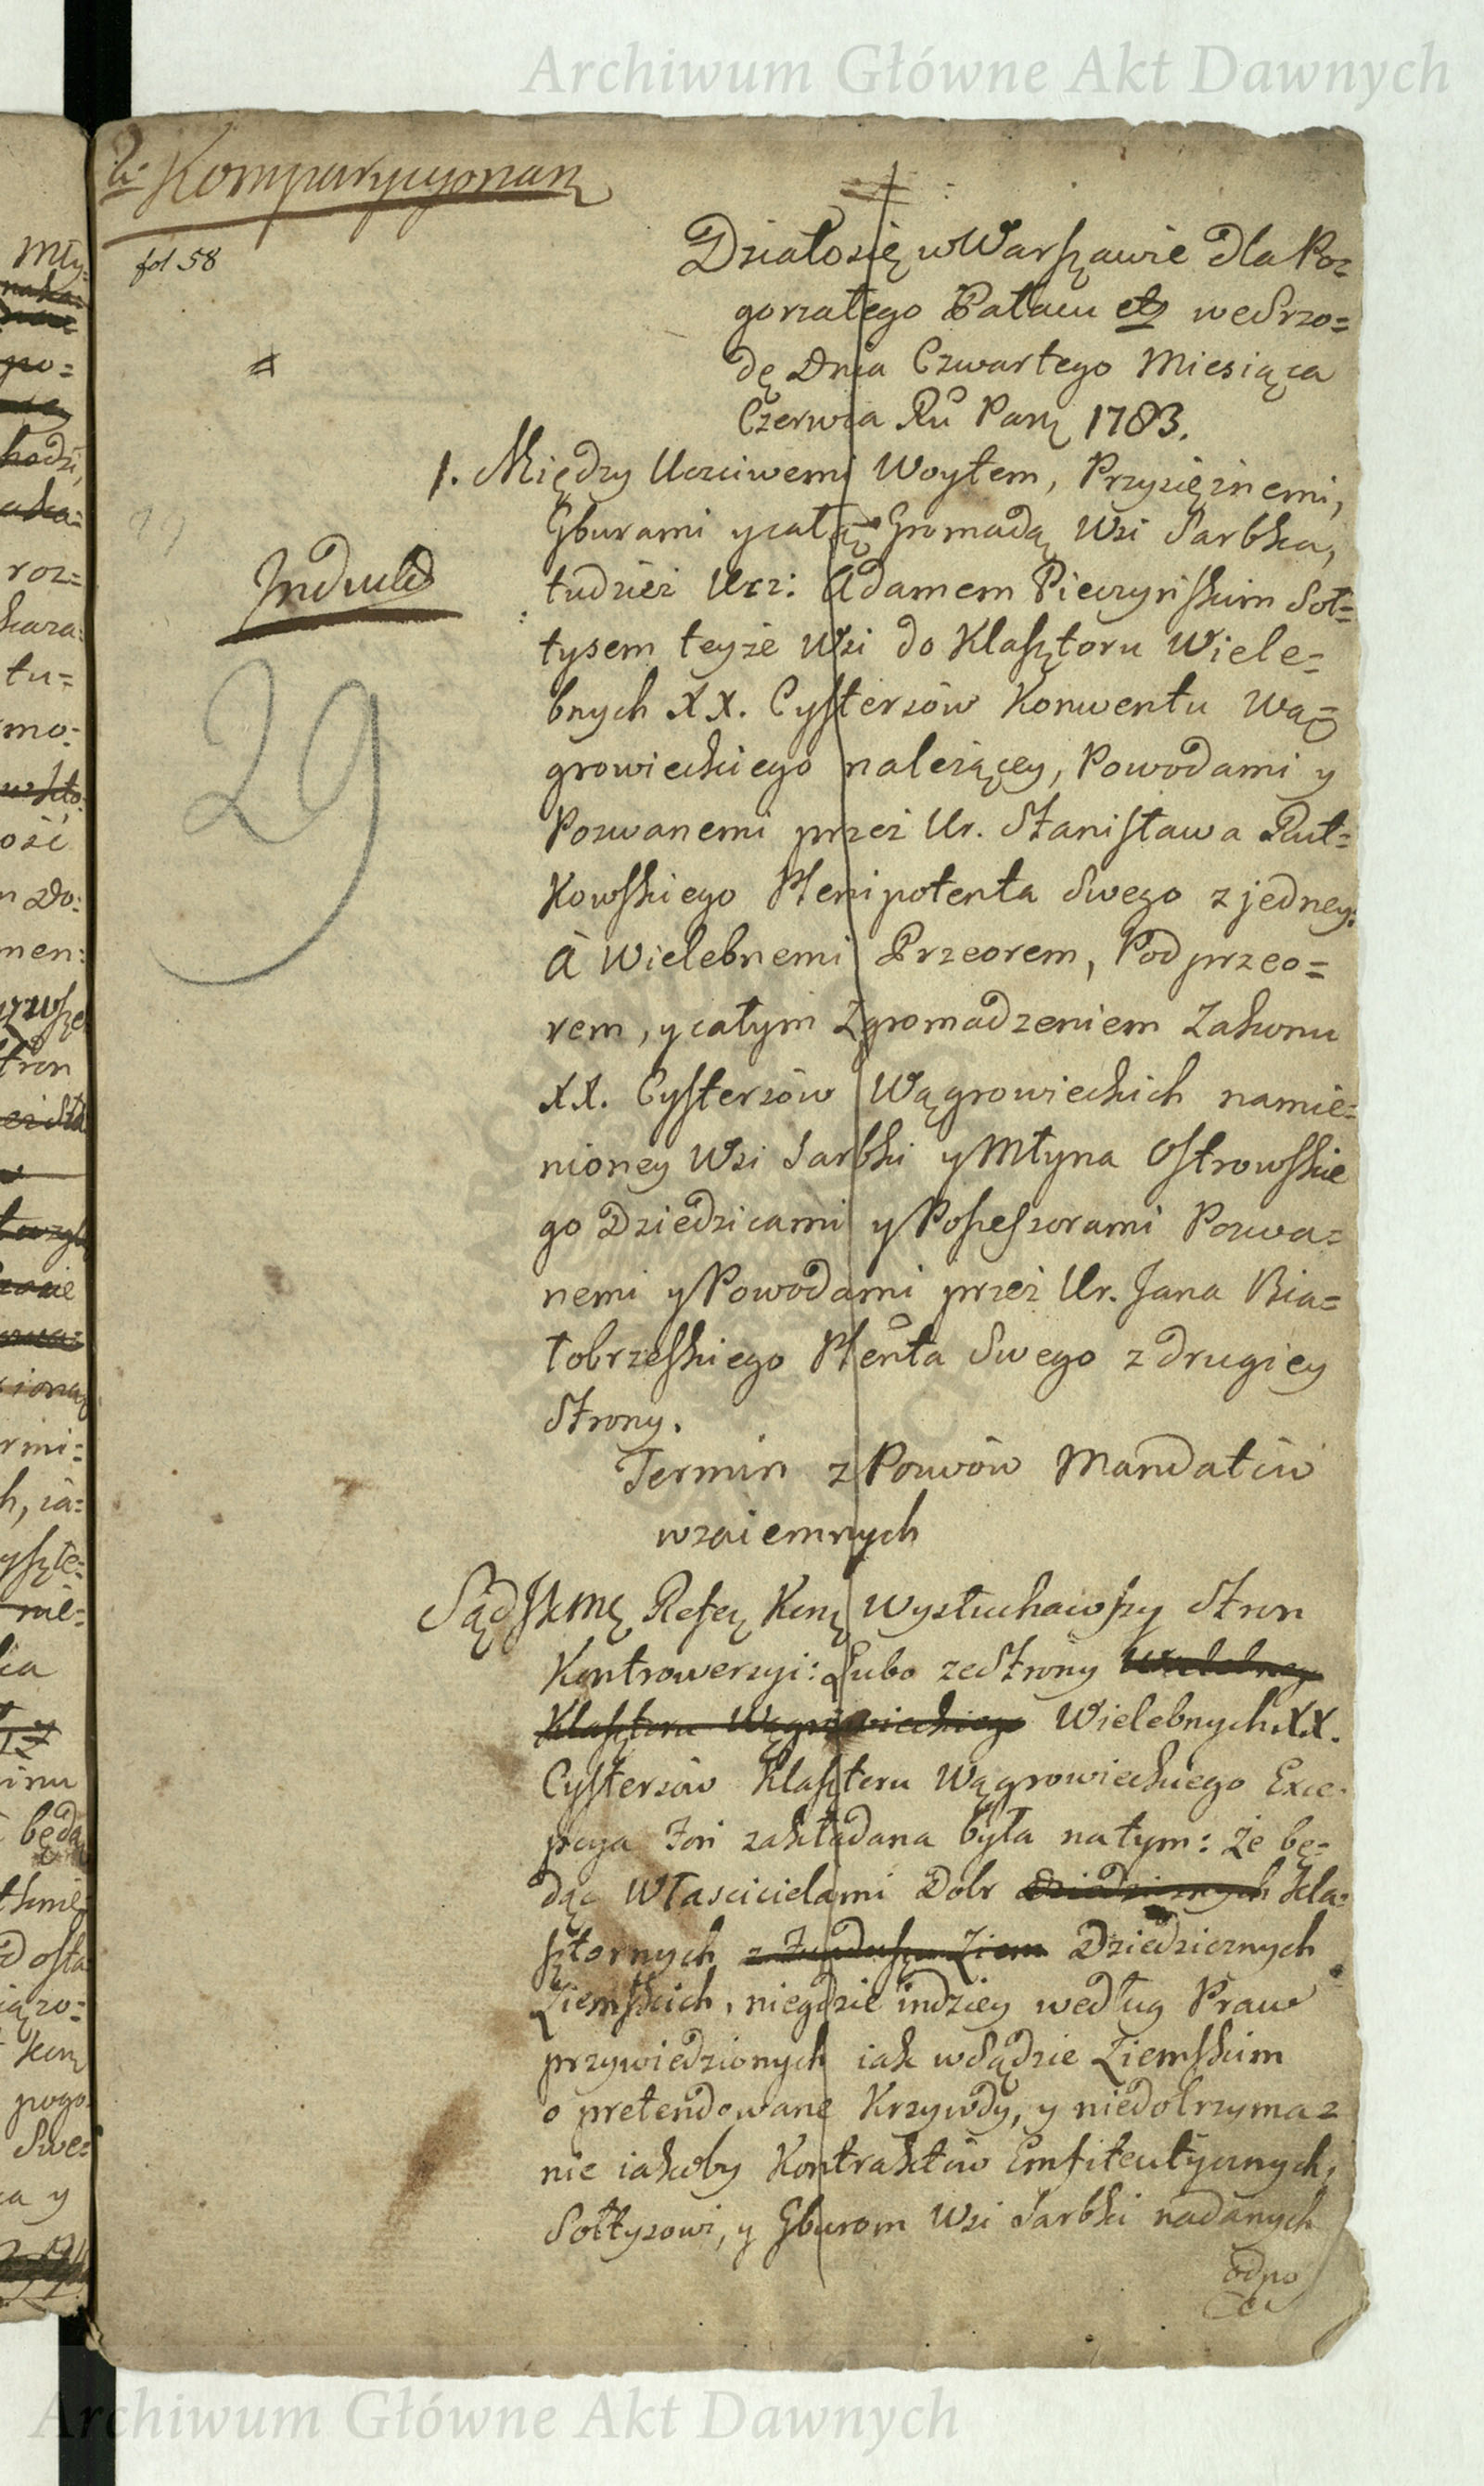 Archiwum Główne Akt Dawnych
Komparycyonan
fol 58
Działo się w Warszawie dla Po=
gorzałego Pałacu etz we Srzo=
dę Dnia Czwartego Miesiąca
Czerwca Ru Pang 1783.
1. Między Uczciwemi Woytem, Przysięznemi,
Gburami y całą Gromadą Wsi Sarbka,
Induct
tudzież Ucz: Adamem Pieczyńskim Soł=
tysem teyże Wsi do Klasztoru Wiele=
bnych XX. Cystersów Konwentu Wą=
growieckiego należącey, Powodami y
29
Pozwanemi przez Ur. Stanisława Rut=
kowskiego Plenipotenta Swego z jedney:
A Wielebnemi Przeorem, Podprzeo=
rem, y całym Zgromadzeniem Zakonu
XX. Cystersów Wągrowieckich namie=
nioney Wsi Sarbki y Młyna Ostrowskie
go Dziedzicami y Possessorami Pozwa=
nemi y Powodami przez Ur. Jana Bia=
łobrzeskiego Plenta Swego z drugiey
Strony.
Termin z Pozwów Mandatów
wzaiemnych
Sąd JKMę Refeę Kong Wysłuchawszy Stron
Kontrowersyi: Lubo ze Strony Wielebney
Klasztoru Wągrowieckiego Wielebnych XX.
Cystersów Klasztoru Wągrowieckiego Exce=
pcya Fori zakładana była na tym: Że bę=
dąc Włascicielami Dobr Dziedzicznych Kla=
sztornych z Funduszu Ziem Dziedzicznych
Ziemskich, niegdzie indziey według Praw
przywiedzionych iak w Sądzie Ziemskim
o pretendowane Krzywdy, y niedotrzyma=
nie iakoby Kontraktów Emfiteutycznych,
Sołtysowi, y Gburom Wsi Sarbki nadanych
odpo
Archiwum Główne Akt Dawnych